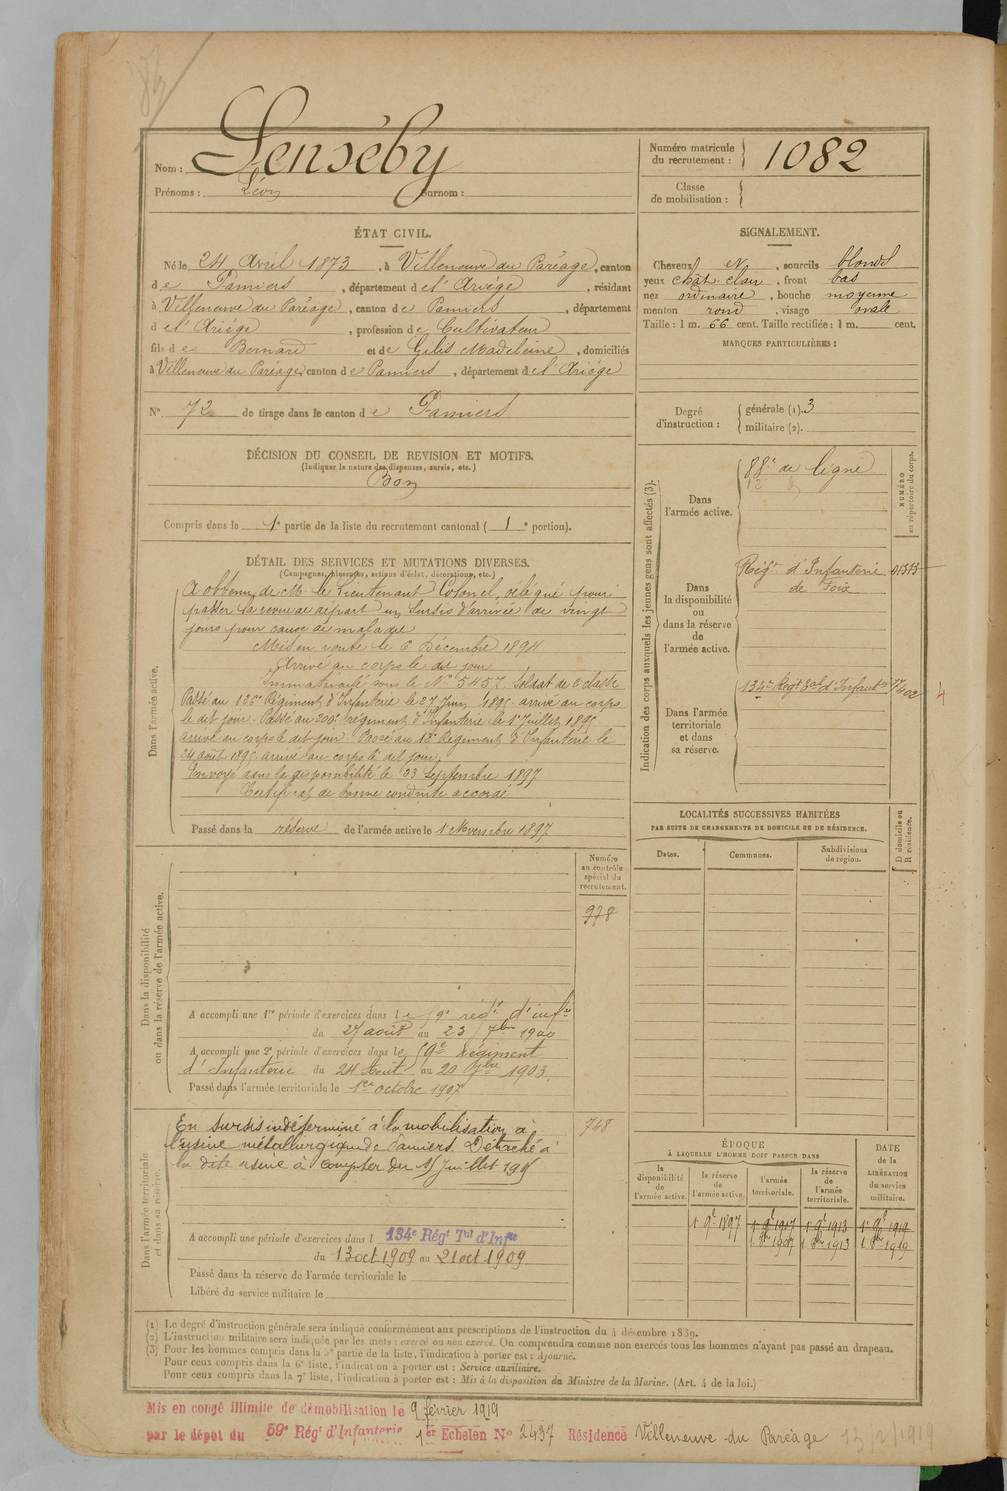 Nom : Senséby
Numéro matricule du recrutement : 1082
Prénoms : Léon Surnom :
Classe de mobilisation :
ÉTAT CIVIL.
Né le 24 Avril 1873, à Villeneuve du Paréage, canton
de Pamiers, département de l'Ariége, résidant
à Villeneuve du Paréage, canton de Pamiers, département
d e l'Ariége, profession de Cultivateur
fils de Bernard et de Gilis Madeleine, domiciliés
à Villeneuve du Paréage, canton de Pamiers, département de l'Ariége
N° 72 de tirage dans le canton de Pamiers
SIGNALEMENT.
Cheveux et, sourcils blonds
yeux chât clair, front bas
nez ordinaire, bouche moyenne
menton rond, visage ovale
Taille : 1 m. 66 cent. Taille rectifiée : 1 m. cent.
MARQUES PARTICULIÈRES :
Degré d'instruction : générale (1). 3
militaire (2).
DÉCISION DU CONSEIL DE REVISION ET MOTIFS.
(Indiquer la nature des dispenses, sursis, etc.)
Bon
Compris dans la 1e partie de la liste du recrutement cantonal ( 1e portion).
DÉTAIL DES SERVICES ET MUTATIONS DIVERSES.
(Campagnes, blessures, actions d'éclat, décorations, etc.)
Dans l'armée active.
A obtenu de Mr le Lieutenant Colonel, délégué pour
passer la revue de départ un sursis d'arrivée de vingt
jours pour cause de maladie
Mis en route le 6 Décembre 1894
Arrivé au corps le dit jour
Immatriculé sous le N° 5457. Soldat de 2e classe
Passé au 126e Régiment d'Infanterie le 27 Juin 1895 arrivé au corps
le dit jour. Passé au 200e régiment d'Infanterie le 1er Juillet 1895
arrivé au corps le dit jour. Passé au 12e Régiment d'Infanterie le
24 août 1895 arrivé au corps le dit jour.
Envoyé dans la disponibilité le 23 Septembre 1897
Certificat de bonne conduite accordé
Passé dans la réserve de l'armée active le 1 Novembre 1897
Indication des corps auxquels les jeunes gens sont affectés (3).
NUMÉRO au répertoire du corps.
Dans l'armée active.
88e de ligne
12
Dans la disponibilité ou dans la réserve de l'armée active.
Régt d'Infanterie de Foix 01313
Dans l'armée territoriale et dans sa réserve.
134e Regt Tal d'Infanterie
4
LOCALITÉS SUCCESSIVES HABITÉES
PAR SUITE DE CHANGEMENTS DE DOMICILE OU DE RÉSIDENCE.
D domicile ou R résidence.
Dates. Communes. Subdivisions de région.
Dans la disponibilité ou dans la réserve de l'armée active.
Numéro au contrôle spécial du recrutement.
978
A accompli une 1re période d'exercices dans le 59e régt d'infie
du 27 août au 23 7bre 1900
A accompli une 2e période d'exercices dans le 59e Régiment
d'Infanterie du 24 Août au 20 7bre 1903.
Passé dans l'armée territoriale le 1er octobre 1907
Dans l'armée territoriale et dans sa réserve.
En sursis indéterminé à la mobilisation à
l'usine métallurgique de Pamiers. Détaché à
la dite usine à compter du 1er Juillet 191
748
A accompli une période d'exercices dans l 134e Régt Tal d'Infie
du 13 oct 1909 au 21 oct 1909.
Passé dans la réserve de l'armée territoriale le
Libéré du service militaire le
ÉPOQUE
À LAQUELLE L'HOMME DOIT PASSER DANS
DATE de la LIBÉRATION du service militaire.
la disponibilité de l'armée active. la réserve de l'armée active. l'armée territoriale. la réserve de l'armée territoriale.
1 9e 1897 1 9e 1907 1 9e 1913 1 9e 1919
1 8bre 1907 1 8bre 1913 1 8bre 1919
(1) Le degré d'instruction générale sera indiqué conformément aux prescriptions de l'instruction du 4 décembre 1889.
(2) L'instruction militaire sera indiquée par les mots : exercé ou non exercé. On comprendra comme non exercés tous les hommes n'ayant pas passé au drapeau.
(3) Pour les hommes compris dans la 5e partie de la liste, l'indication à porter est : Ajourné.
Pour ceux compris dans la 6e liste, l'indication à porter est : Service auxiliaire.
Pour ceux compris dans la 7e liste, l'indication à porter est : Mis à la disposition du Ministre de la Marine. (Art. 4 de la loi.)
Mis en congé illimité de démobilisation le 9 février 1919
par le dépôt du 59e Régt d'Infanterie 1er Echelon N° 2437 Résidence Villeneuve du Paréage 13/2/1919